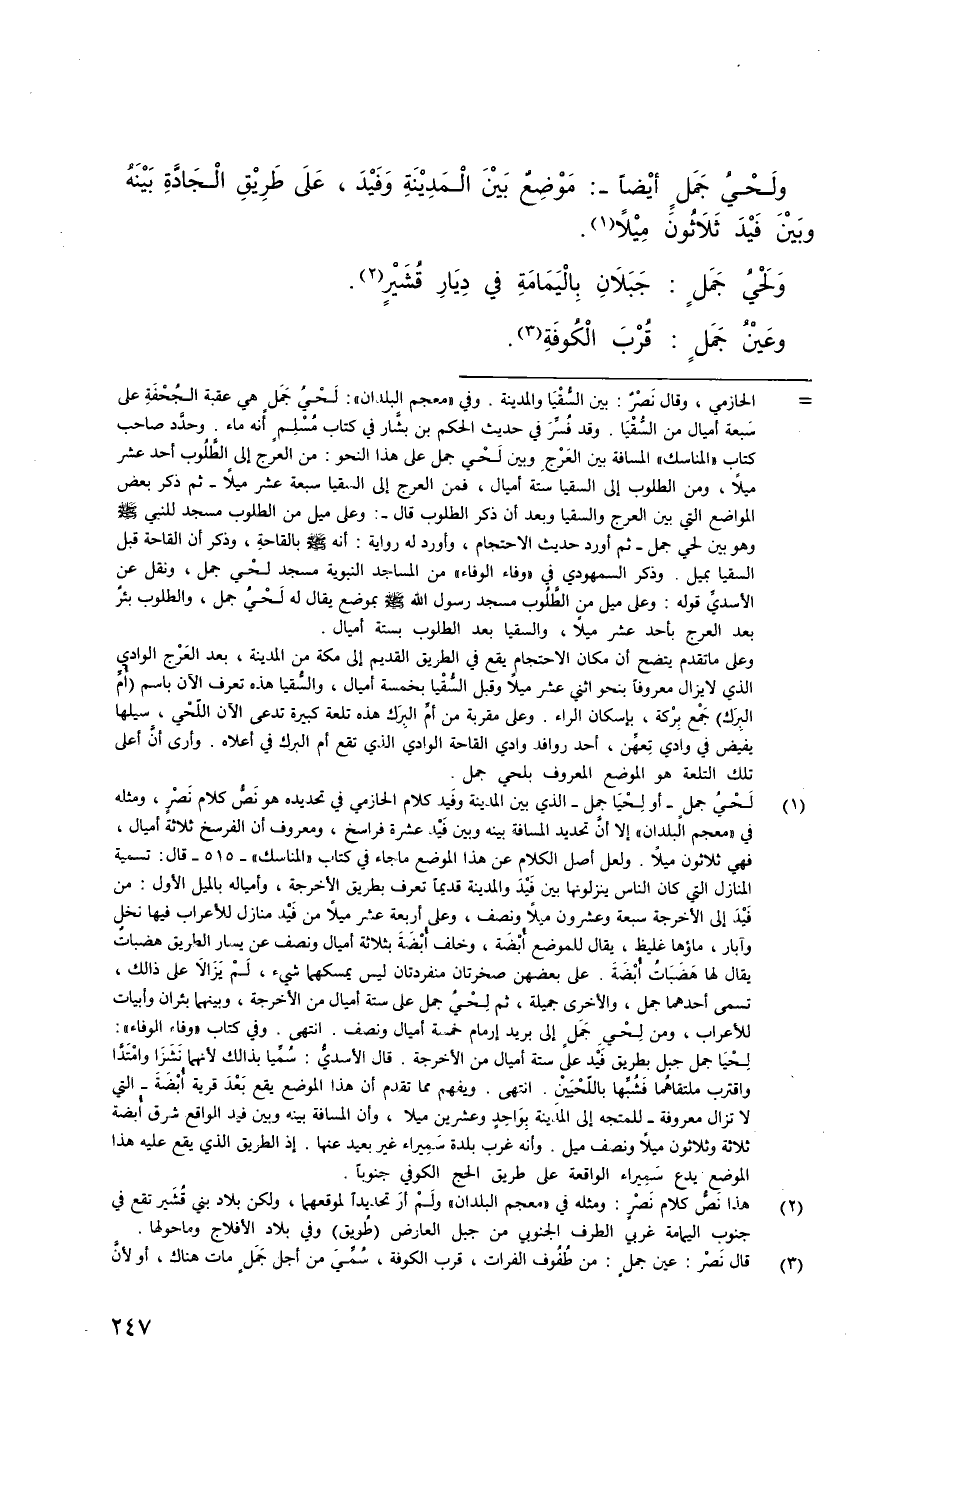 ولَـحْـيُ جَمَلٍ أَيْضاً ـ: مَوْضِعٌ بَيْنَ الْـمَدِيْنَةِ وَفَيْدَ ، عَلَى طَرِيْقِ الْـجَادَّةِ بَيْنَهُ
وبَيْنَ فَيْدَ ثَلَاثُونَ مِيْلًا(١).
وَلَحْيُ جَمَلٍ : جَبَلَانِ بِالْيَمَامَةِ في دِيَارِ قُشَيْرٍ(٢).
وعَيْنُ جَمَلٍ : قُرْبَ الْكُوفَةِ(٣).
= الحازمي ، وقال نَصْرٌ : بين السُّقْيَا والمدينة . وفي «معجم البلدان»: لَـحْـيُ جَمَلٍ هي عقبة الـجُحْفَةِ على
سَبعة أميال من السُّقْيَا . وقد فُسِّرَ في حديث الحكم بن بشَّار في كتاب مُسْلِمٍ أنه ماء . وحدَّد صاحب
كتاب «المناسك» المسافة بين العَرْجِ وبين لَـحْـي جمل على هذا النحو : من العرج إلى الطَّلُوب أحد عشر
ميلًا ، ومن الطلوب إلى السقيا ستة أميال ، فمن العرج إلى السقيا سبعة عشر ميلًا ـ ثم ذكر بعض
المواضع التي بين العرج والسقيا وبعد أن ذكر الطلوب قال ـ: وعلى ميل من الطلوب مسجد للنبي ﷺ
وهو بين لحي جمل ـ ثم أورد حديث الاحتجام ، وأورد له رواية : أنه ﷺ بالقاحةِ ، وذكر أن القاحة قبل
السقيا بميل . وذكر السمهودي في «وفاء الوفاء» من المساجد النبوية مسجد لـحْـي جمل ، ونقل عن
الأسديِّ قوله : وعلى ميل من الطَّلُوب مسجد رسول الله ﷺ بموضع يقال له لَـحْـيُ جمل ، والطلوب بئرٌ
بعد العرج بأحد عشر ميلًا ، والسقيا بعد الطلوب بستة أميال .
وعلى ماتقدم يتضح أن مكان الاحتجام يقع في الطريق القديم إلى مكة من المدينة ، بعد العَرْج الوادي
الذي لايزال معروفاً بنحو اثني عشر ميلًا وقبل السُّقْيا بخمسة أميال ، والسُّقيا هذه تعرف الآن باسم (أُمِّ
البِرَك) جَمْع بِرْكة ، بإسكان الراء . وعلى مقربة من أمِّ البِرَك هذه تلعة كبيرة تدعى الآن اللَّحْي ، سيلها
يفيض في وادي تِعهِّن ، أحد روافد وادي القاحة الوادي الذي تقع أم البرك في أعلاه . وأرى أنَّ أعلى
تلك التلعة هو الموضع المعروف بلحي جمل .
(١) لَـحْـيُ جملٍ ـ أو لِـحْيَا جملٍ ـ الذي بين المدينة وفَيد كلام الحازمي في تحديده هو نَصُّ كلام نَصْرٍ ، ومثله
في «معجم البلدان» إلا أنَّ تحديد المسافة بينه وبين فَيْد عشرة فراسخ ، ومعروف أن الفرسخ ثلاثة أميال ،
فهي ثلاثون ميلًا . ولعل أصل الكلام عن هذا الموضع ماجاء في كتاب «المناسك» ـ ٥١٥ ـ قال: تسمية
المنازل التي كان الناس ينزلونها بين فَيْدَ والمدينة قديماً تعرف بطريق الأخرجة ، وأمياله بالميل الأول : من
فَيْدَ إلى الأخرجة سبعة وعشرون ميلًا ونصف ، وعلى أربعة عشر ميلًا من فَيْد منازل للأعراب فيها نخل
وآبار ، ماؤها غليظ ، يقال للموضع أُبْضَة ، وخلف أُبْضَةَ بثلاثة أميال ونصف عن يسار الطريق هضباتٌ
يقال لها هَضَبَاتُ أُبْضَةَ . على بعضهن صخرتان منفردتان ليس يمسكهما شيء ، لَـمْ يَزَالَا على ذالك ،
تسمى أحدهما جمل ، والأخرى جميلة ، ثم لِـحْـيُ جمل على ستة أميال من الأخرجة ، وبينهما بئران وأبيات
للأعراب ، ومن لِـحْـي جَمَلٍ إلى بريد إرمام خمسة أميال ونصف . انتهى . وفي كتاب «وفاء الوفاء»:
لِـحْيَا جمل جبل بطريق فَيْد على ستة أميال من الأخرجة . قال الأسديُّ : سُمِّيا بذالك لأنهما نَشَزَا وامْتَدَّا
واقترب ملتقاهُما فَشُبِّها باللَّحْيَيْنِ . انتهى . ويفهم مما تقدم أن هذا الموضع يقع بَعْدَ قرية أُبْضَةَ ـ التي
لا تزال معروفة ـ للمتجه إلى المدينة بِوَاحِدٍ وعشرين ميلا ، وأن المسافة بينه وبين فيد الواقع شرق أبضة
ثلاثة وثلاثون ميلًا ونصف ميل . وأنه غرب بلدة سَمِيراء غير بعيد عنها . إذ الطريق الذي يقع عليه هذا
الموضع يدع سَمِيراء الواقعة على طريق الحج الكوفي جنوباً .
(٢) هذا نَصُّ كلام نَصْرٍ : ومثله في «معجم البلدان» ولَـمْ أرَ تحديداً لموقعهما ، ولكن بلاد بني قُشَير تقع في
جنوب اليمامة غربي الطرف الجنوبي من جبل العارض (طُوَيق) وفي بلاد الأفلاج وماحولها .
(٣) قال نَصْرٌ : عين جملٍ : من طُفُوف الفرات ، قرب الكوفة ، سُمِّيَ من أجل جَمَلٍ مات هناك ، أو لأنَّ
٢٤٧